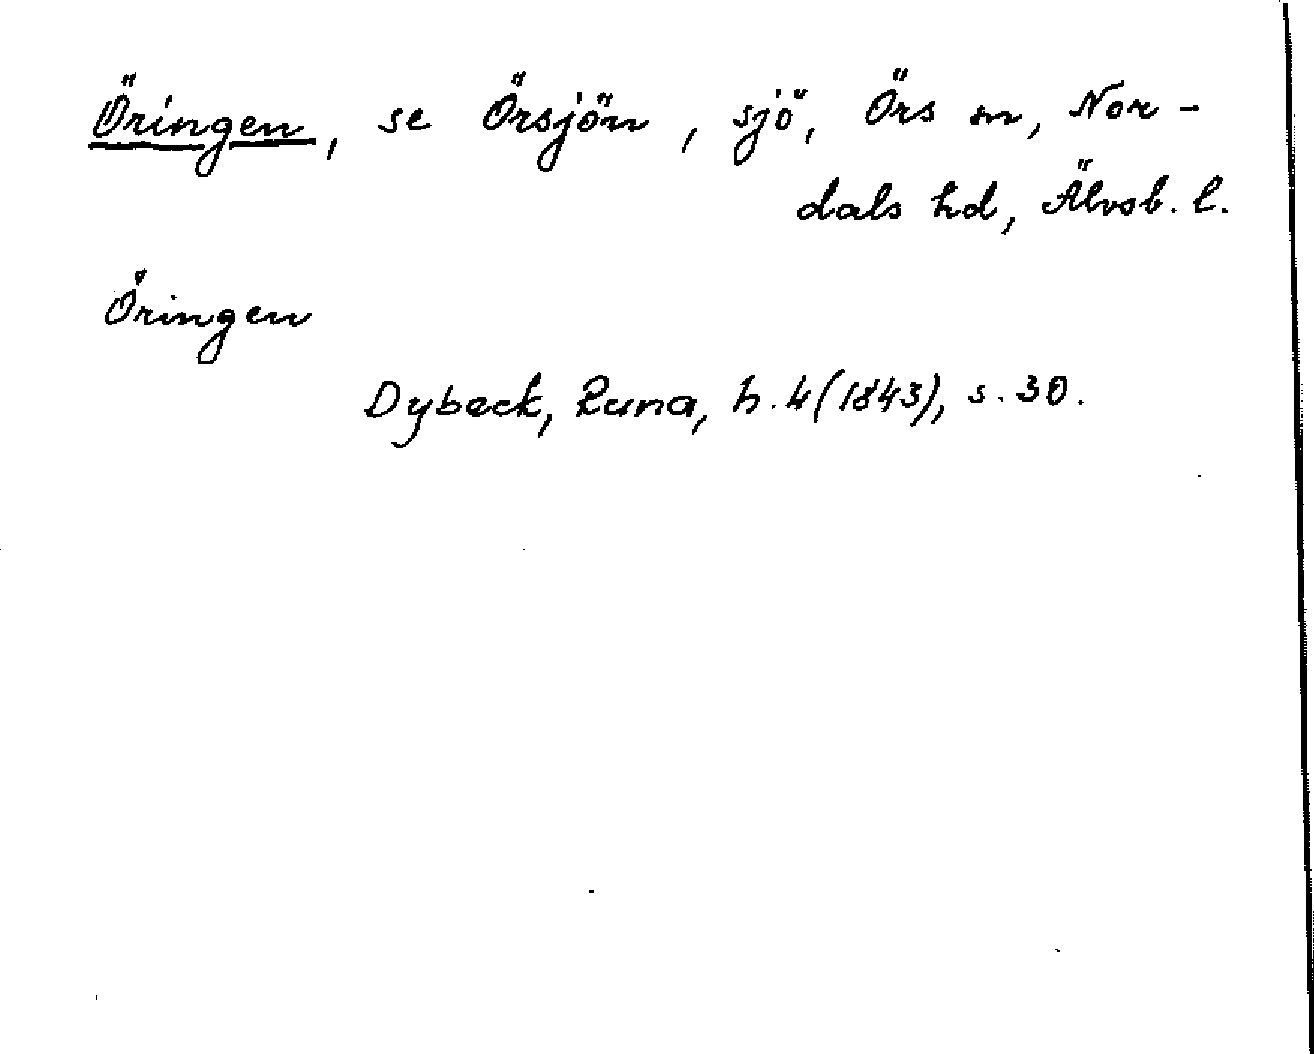 Öringen, se Örsjön, sjö, Örs sn, Nor-
dals hd, Älvsb. l.
Öringen
Dybeck, Runa, h. 4 (1843), s. 30.